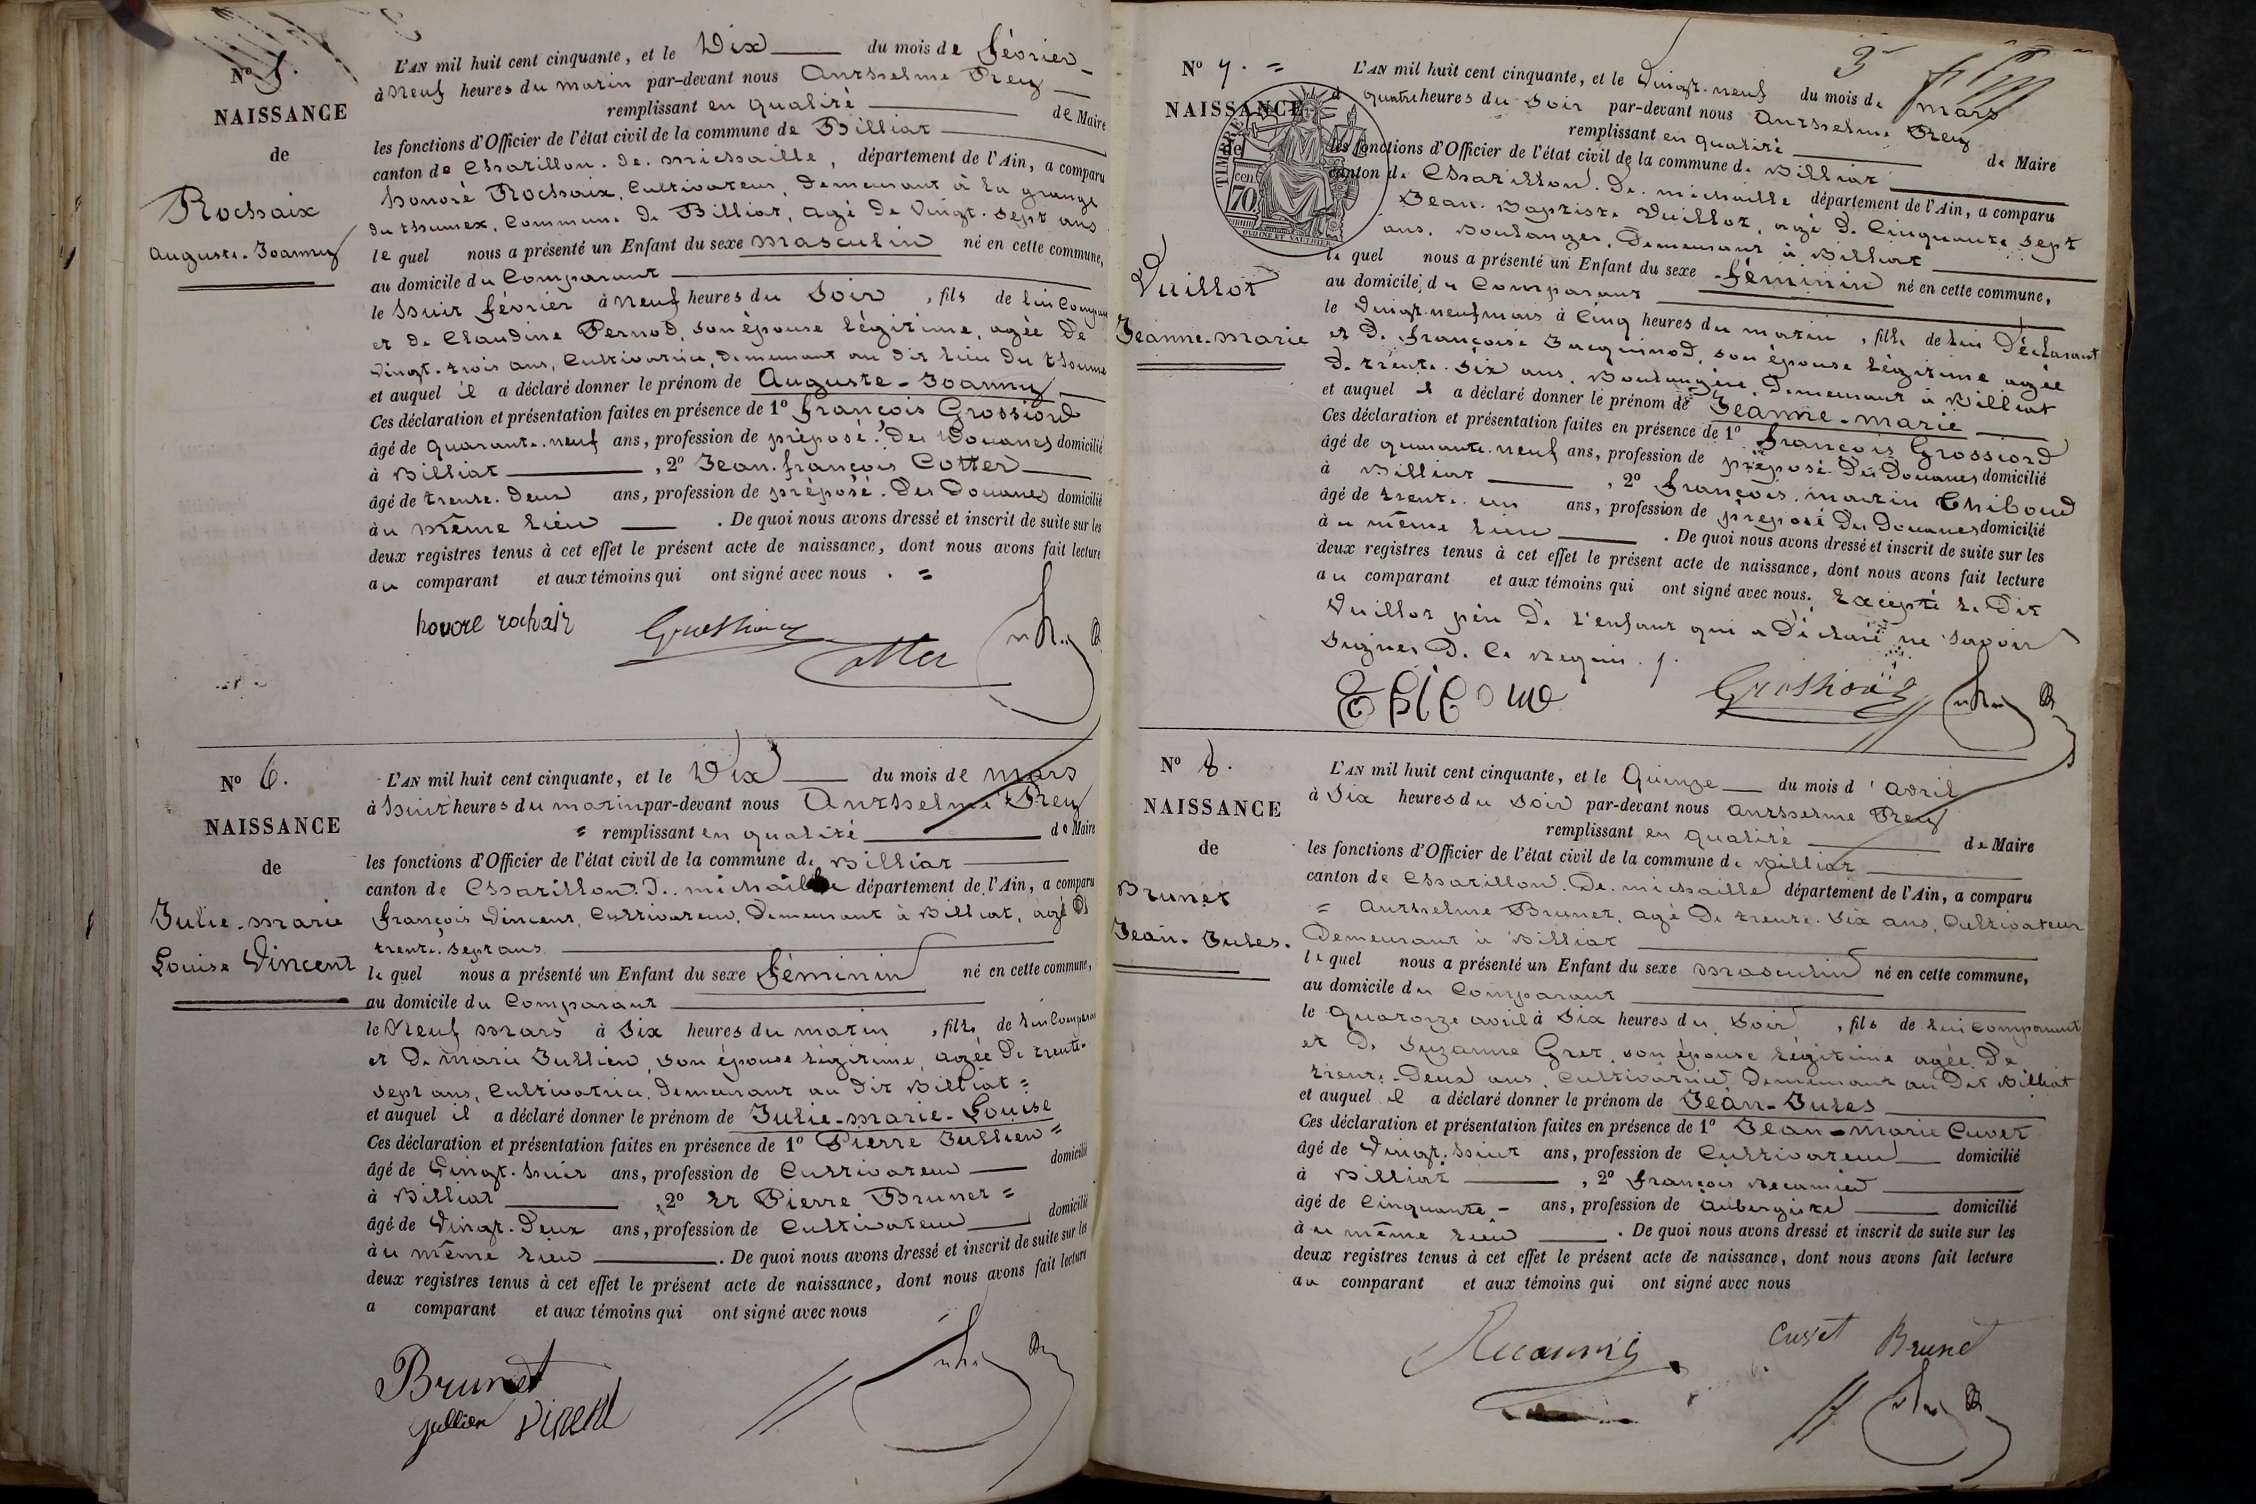 N° 5.
NAISSANCE
de
Rochaix
Auguste-Joanny
L'AN mil huit cent cinquante, et le Dix du mois de février
à Neuf heures du matin par-devant nous Anthelme Prey
remplissant en qualité de Maire
les fonctions d'Officier de l'état civil de la commune de Billiat
canton de Chatillon. de. michaille, département de l'Ain, a comparu
honoré Rochaix, Cultivateur, demeurant à la grange
du thumex, Commune de Billiat, agé de Vingt. sept ans
le quel nous a présenté un Enfant du sexe masculin né en cette commune,
au domicile du Comparant
le huit février à neuf heures du Soir, fils de lui Compa
et de Claudine Pernod, son épouse légitime, agée de
vingt. trois ans, Cultivatrice, demeurant au dit lieu du thume
et auquel il a déclaré donner le prénom de Auguste-Joanny
Ces déclaration et présentation faites en présence de 1° françois Grossiord
âgé de quarante. neuf ans, profession de préposé. Des Douanes domicilié
à Billiat, 2° Jean. françois Cotter
âgé de trente. Deux ans, profession de préposé. Des Douanes domicilié
àu même lieu. De quoi nous avons dressé et inscrit de suite sur les
deux registres tenus à cet effet le présent acte de naissance, dont nous avons fait lecture
au comparant et aux témoins qui ont signé avec nous. =
honore rochaix Grossiord
Cotter
N° 6.
NAISSANCE
de
Julie-marie
Louise Vincent
L'AN mil huit cent cinquante, et le Dix du mois de mars
à huit heures du matin par-devant nous Anthelme Prey
= remplissant en qualité de Maire
les fonctions d'Officier de l'état civil de la commune de Billiat
canton de Chatillon. D. michaille département de l'Ain, a comparu
françois Vincent, Cultivateur, Demeurant à Billiat, agé De
trente. sept ans
le quel nous a présenté un Enfant du sexe féminin né en cette commune,
au domicile du Comparant
le Neuf mars à Six heures du matin, fille de lui Comparan
et De marie Jullien, son épouse légitime, agée De trente-
sept ans, Cultivatrice, Demeurant au dit Billiat =
et auquel il a déclaré donner le prénom de Julie-marie-Louise
Ces déclaration et présentation faites en présence de 1° Pierre Jullien =
âgé de Vingt. huit ans, profession de Cultivateur domicilié
à Billiat, 2° et Pierre Brunet =
âgé de Vingt. Deux ans, profession de Cultivateur domicilié
àu même lieu. De quoi nous avons dressé et inscrit de suite sur les
deux registres tenus à cet effet le présent acte de naissance, dont nous avons fait lecture
a comparant et aux témoins qui ont signé avec nous
Brunet
Jullien Vincent
3
N° 7. =
NAISSANCE
de
TIMBRE
cen.
70
OUDINE ET VAUTHIER
Vuillot
Jeanne-marie
L'AN mil huit cent cinquante, et le Vingt-neuf du mois de mars
à quatre heures du Soir par-devant nous Anthelme Prey
remplissant en qualité de Maire
les fonctions d'Officier de l'état civil de la commune de Billiat
canton de Chatillon. De. michaille département de l'Ain, a comparu
Jean. Baptiste Vuillot, agé de Cinquante sept
ans, Boulanger, Demeurant à Billiat
le quel nous a présenté un Enfant du sexe féminin né en cette commune,
au domicile du Comparant
le Vingt-neuf mars à Cinq heures du matin, fille de lui Déclarant
et De françoise Jacquinod, son épouse légitime agée
de trente. six ans, Boulangère, Demeurant à Billiat
et auquel il a déclaré donner le prénom de Jeanne-marie
Ces déclaration et présentation faites en présence de 1° françois Grossiord
âgé de quarante. neuf ans, profession de préposé Des Douanes domicilié
à Billiat, 2° françois. martin Thiboud
âgé de trente. un ans, profession de préposé Des Douanes domicilié
àu même lieu. De quoi nous avons dressé et inscrit de suite sur les
deux registres tenus à cet effet le présent acte de naissance, dont nous avons fait lecture
au comparant et aux témoins qui ont signé avec nous. Excepté le Dit
Vuillot père De l'enfant qui a Déclaré ne savoir
signer D. Ce requis.
Grossiord
N° 8.
NAISSANCE
de
Brunet
Jean-Jules.
L'AN mil huit cent cinquante, et le Quinze du mois d'avril
à Six heures du Soir par-devant nous Anthelme Prey
remplissant en qualité de Maire
les fonctions d'Officier de l'état civil de la commune de Billiat
canton de Chatillon. De. michaille département de l'Ain, a comparu
= Anthelme Brunet, agé De trente. Six ans, Cultivateur
Demeurant à Billiat
le quel nous a présenté un Enfant du sexe masculin né en cette commune,
au domicile du Comparant
le quatorze avril à Six heures du Soir, fils de lui Comparant
et De Suzanne Gret, son épouse légitime agée De
trente-Deux ans, Cultivatrice Demeurant au Dit Billiat
et auquel il a déclaré donner le prénom de Jean-Jules
Ces déclaration et présentation faites en présence de 1° Jean-marie Cuvet
âgé de Vingt. huit ans, profession de Cultivateur domicilié
à Billiat, 2° françois Recamier
âgé de Cinquante - ans, profession de Aubergiste domicilié
àu même lieu. De quoi nous avons dressé et inscrit de suite sur les
deux registres tenus à cet effet le présent acte de naissance, dont nous avons fait lecture
au comparant et aux témoins qui ont signé avec nous
Recamier Cuvet Brunet